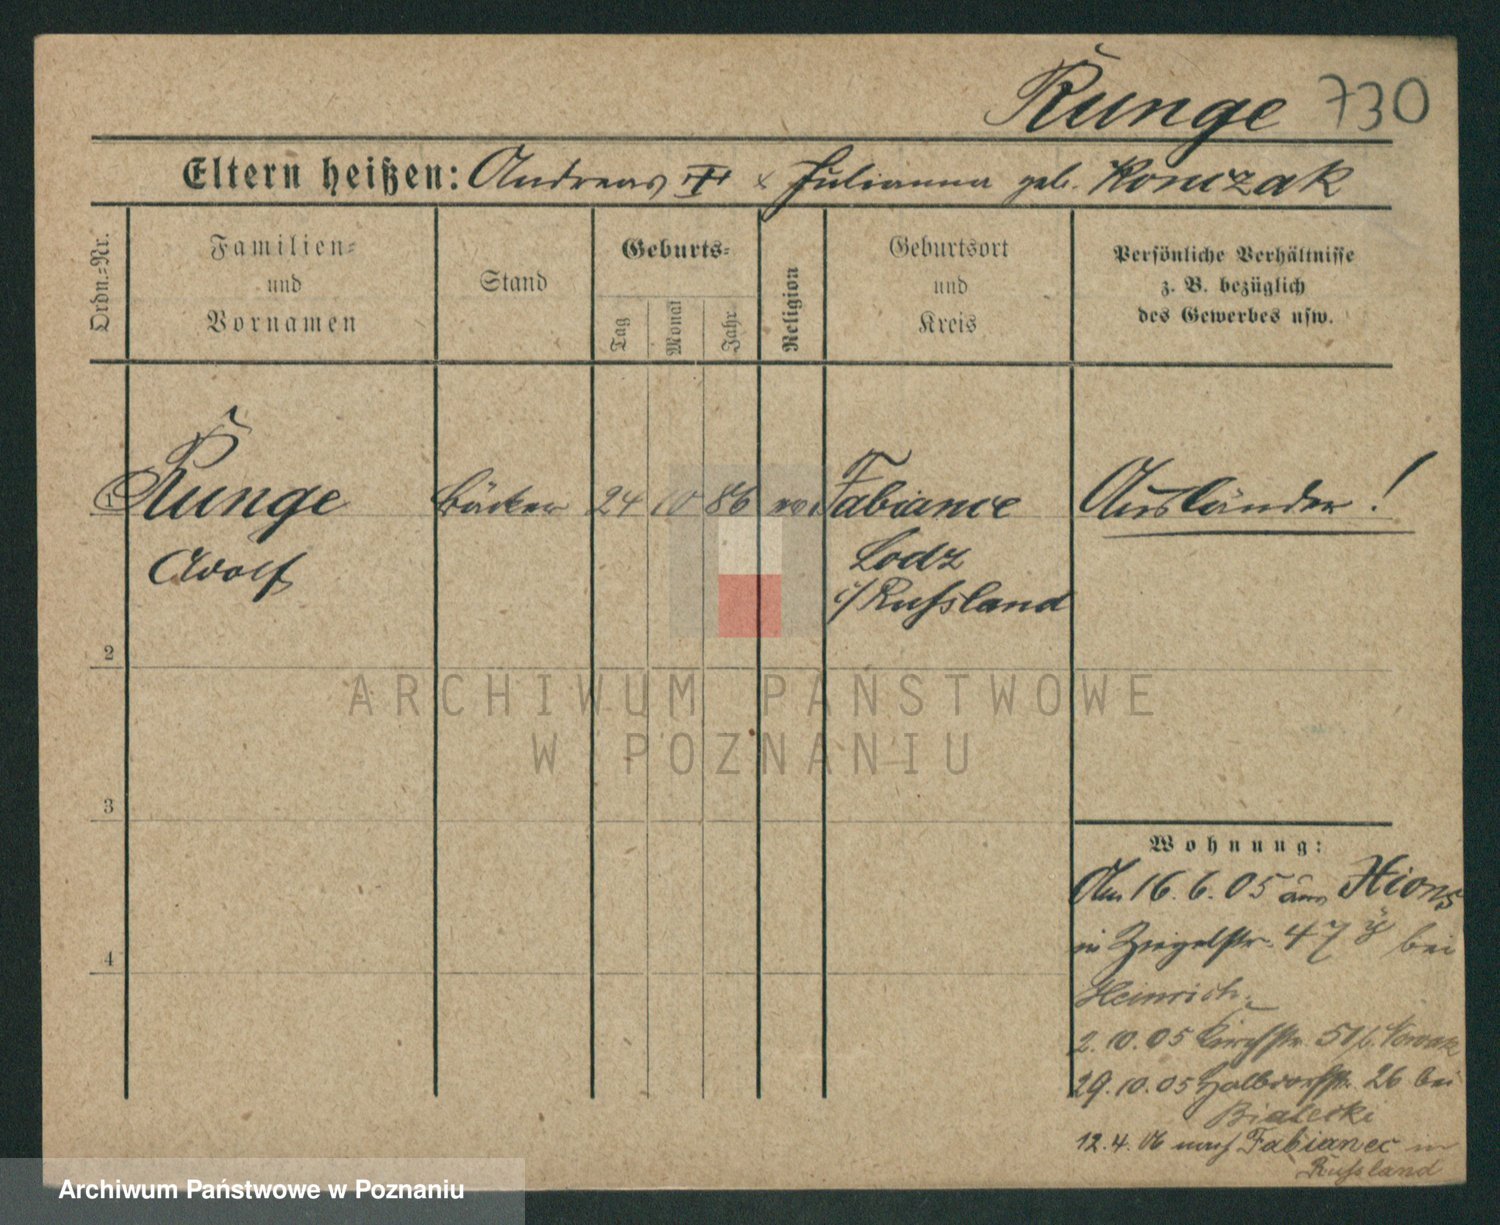 Runge 730
Eltern heißen: Andreas † x Julianna geb. Konczak
Ordn.=Nr.
Familien=
und
Vornamen
Stand
Geburts=
Tag
Monat
Jahr
Religion
Geburtsort
und
Kreis
Persönliche Verhältnisse
z. B. bezüglich
des Gewerbes usw.
1 Runge Bäcker 24 10 86 Fabiance Ausländer!
Adolf Lodz
i/Russland
2
3
4
Wohnung:
Am 16.6.05 aus Xions
in Ziegelstr. 47 bei
Heinrich.
2.10.05 Kirchstr. 51 b. Nowak
29.10.05 Halbdorfstr. 26 bei
Bialecki
12.4.06 nach Fabianec in
Russland
ARCHIWUM PAŃSTWOWE
W POZNANIU
Archiwum Państwowe w Poznaniu